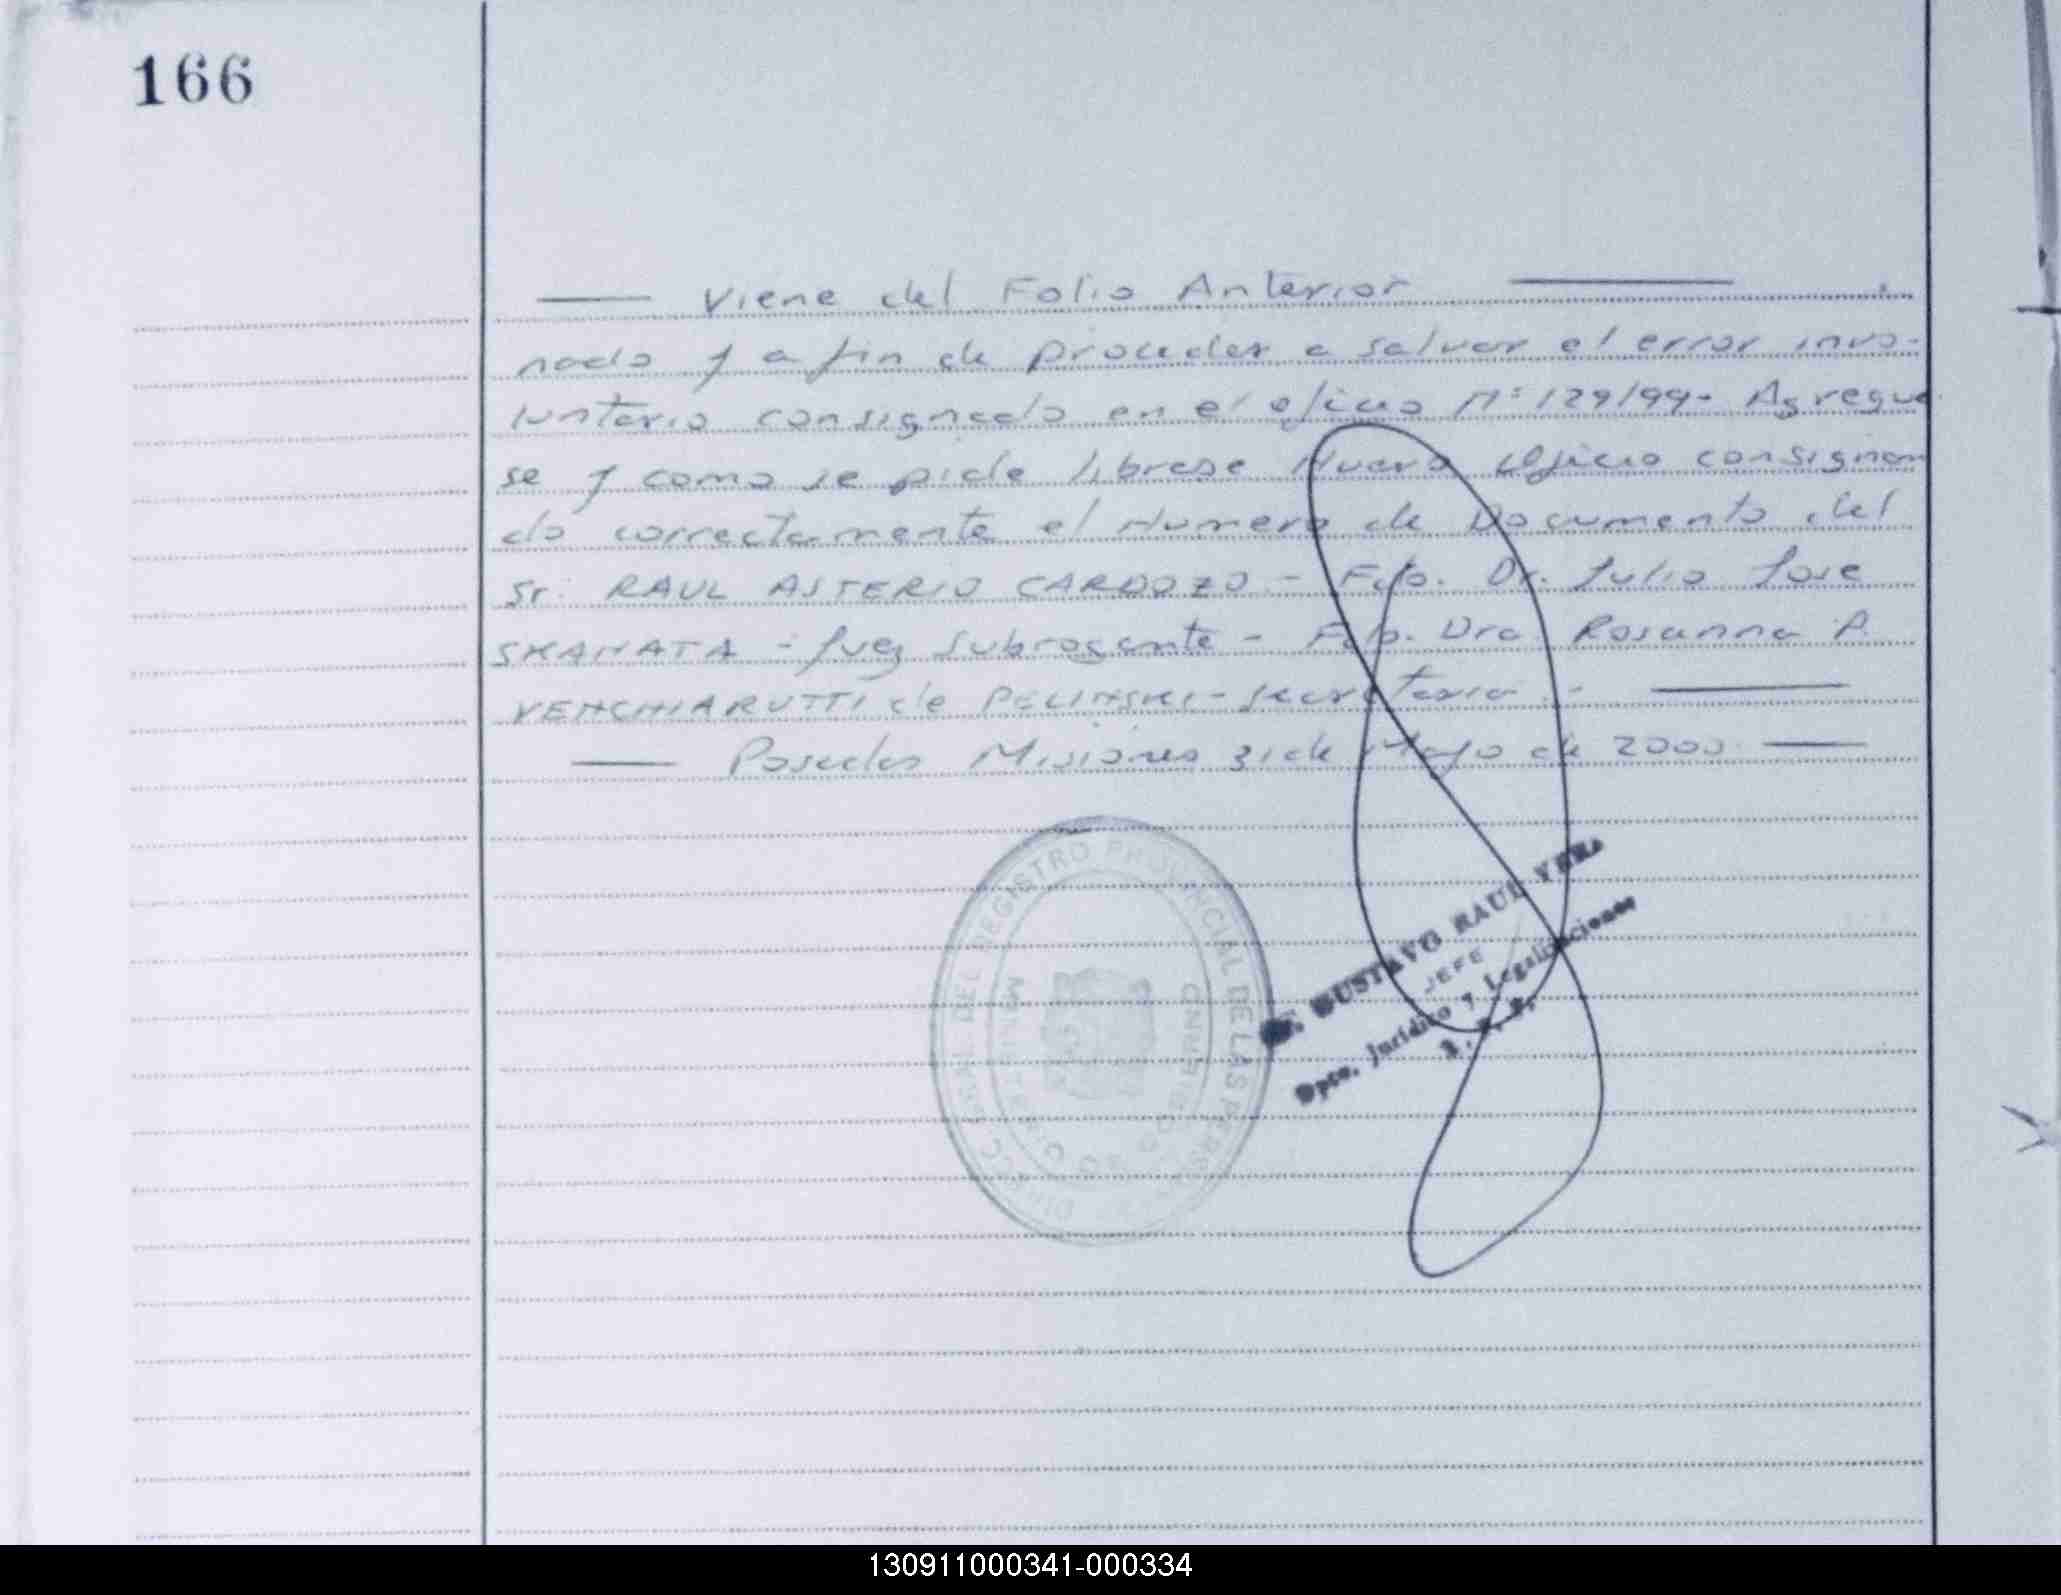 166
Viene del Folio Anterior
nado y a fin de proceder a salvar el error invo-
luntario consignado en el oficio Nº 129/99- Agregue
se y como se pide librese Nuevo Oficio consignan
do correctamente el Numero de Documento del
Sr. RAUL ASTERIO CARDOZO - Fdo. Dr. Julio Jose
SKANATA - Juez Subrogante - Fdo. Dra. Rosanna P.
VENCHIARUTTI de PELINSKI - Secretaria -
Posadas Misiones 31 de Mayo de 2000
DEL REGISTRO PROVINCIAL DE LAS
GUSTAVO RAUL VERA
JEFE
Dpto. Jurídico y Legalizaciones
130911000341-000334